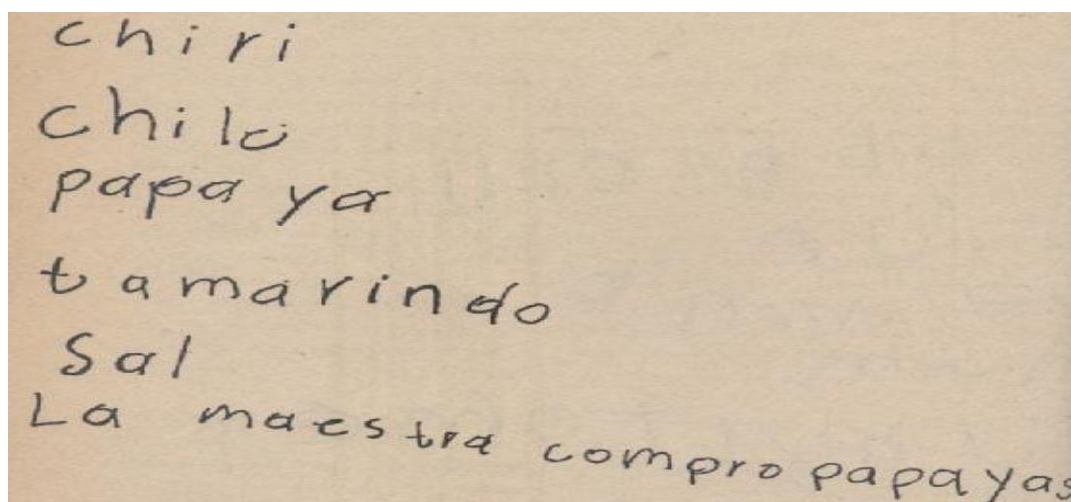 chiri
chile
papa ya
tamarindo
Sal
La maestra compro papayas